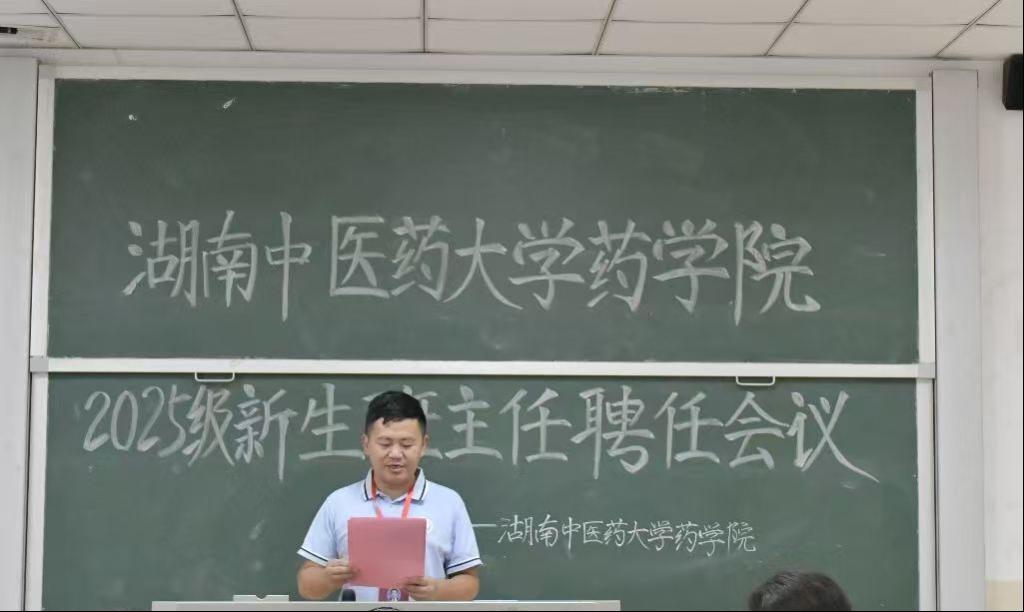 湖南中医药大学药学院
2025级新生班主任聘任会议
—湖南中医药大学药学院